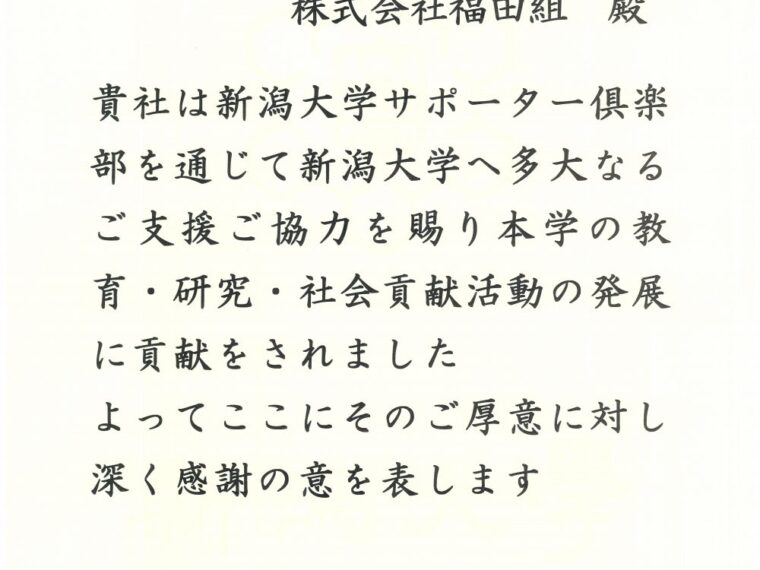 株式会社福田組　殿
貴社は新潟大学サポーター倶楽
部を通じて新潟大学へ多大なる
ご支援ご協力を賜り本学の教
育・研究・社会貢献活動の発展
に貢献をされました
よってここにそのご厚意に対し
深く感謝の意を表します